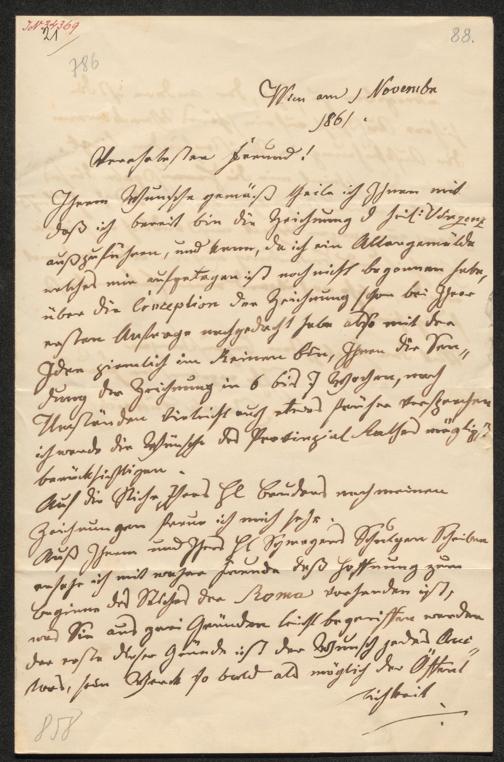 JN 34369
21
786
88.
Wien am 1 November
1861.
Verehrtester Freund!
Ihrem Wunsche gemäß theile ich Ihnen mit
daß ich bereit bin die Zeichnung d heil:
auszuführen, und kann, da ich ein Altargemälde
welches mir aufgetragen ist noch nicht begonnen habe,
über die Conception der Zeichnung schon bei Ihrer
ersten Anfrage nachgedacht habe also mit der
Idee ziemlich im Reinen bin, Ihnen die Sen„
dung der Zeichnung in 6 bis 7 Wochen, nach
Umständen vieleicht auch etwas früher versprechen
ich werde die Wünsche des Provinzial Rathes möglichst
berücksichtigen.
Auf die Stiche Ihres H Bruders nach meinen
Zeichnungen freue ich mich sehr.
Auß Ihrem und Ihres H Schwagers Schulgen Schreiben
ersehe ich mit wahrer Freude daß Hoffnung zum
beginne des Stiches der Roma vorhanden ist,
was Sie aus zwei Gründen leicht begreiffen werden
der erste dieser Gründe ist der Wunsch jedes Au„
tors, sein Werck so bald als möglich der Öffent
lichkeit
858